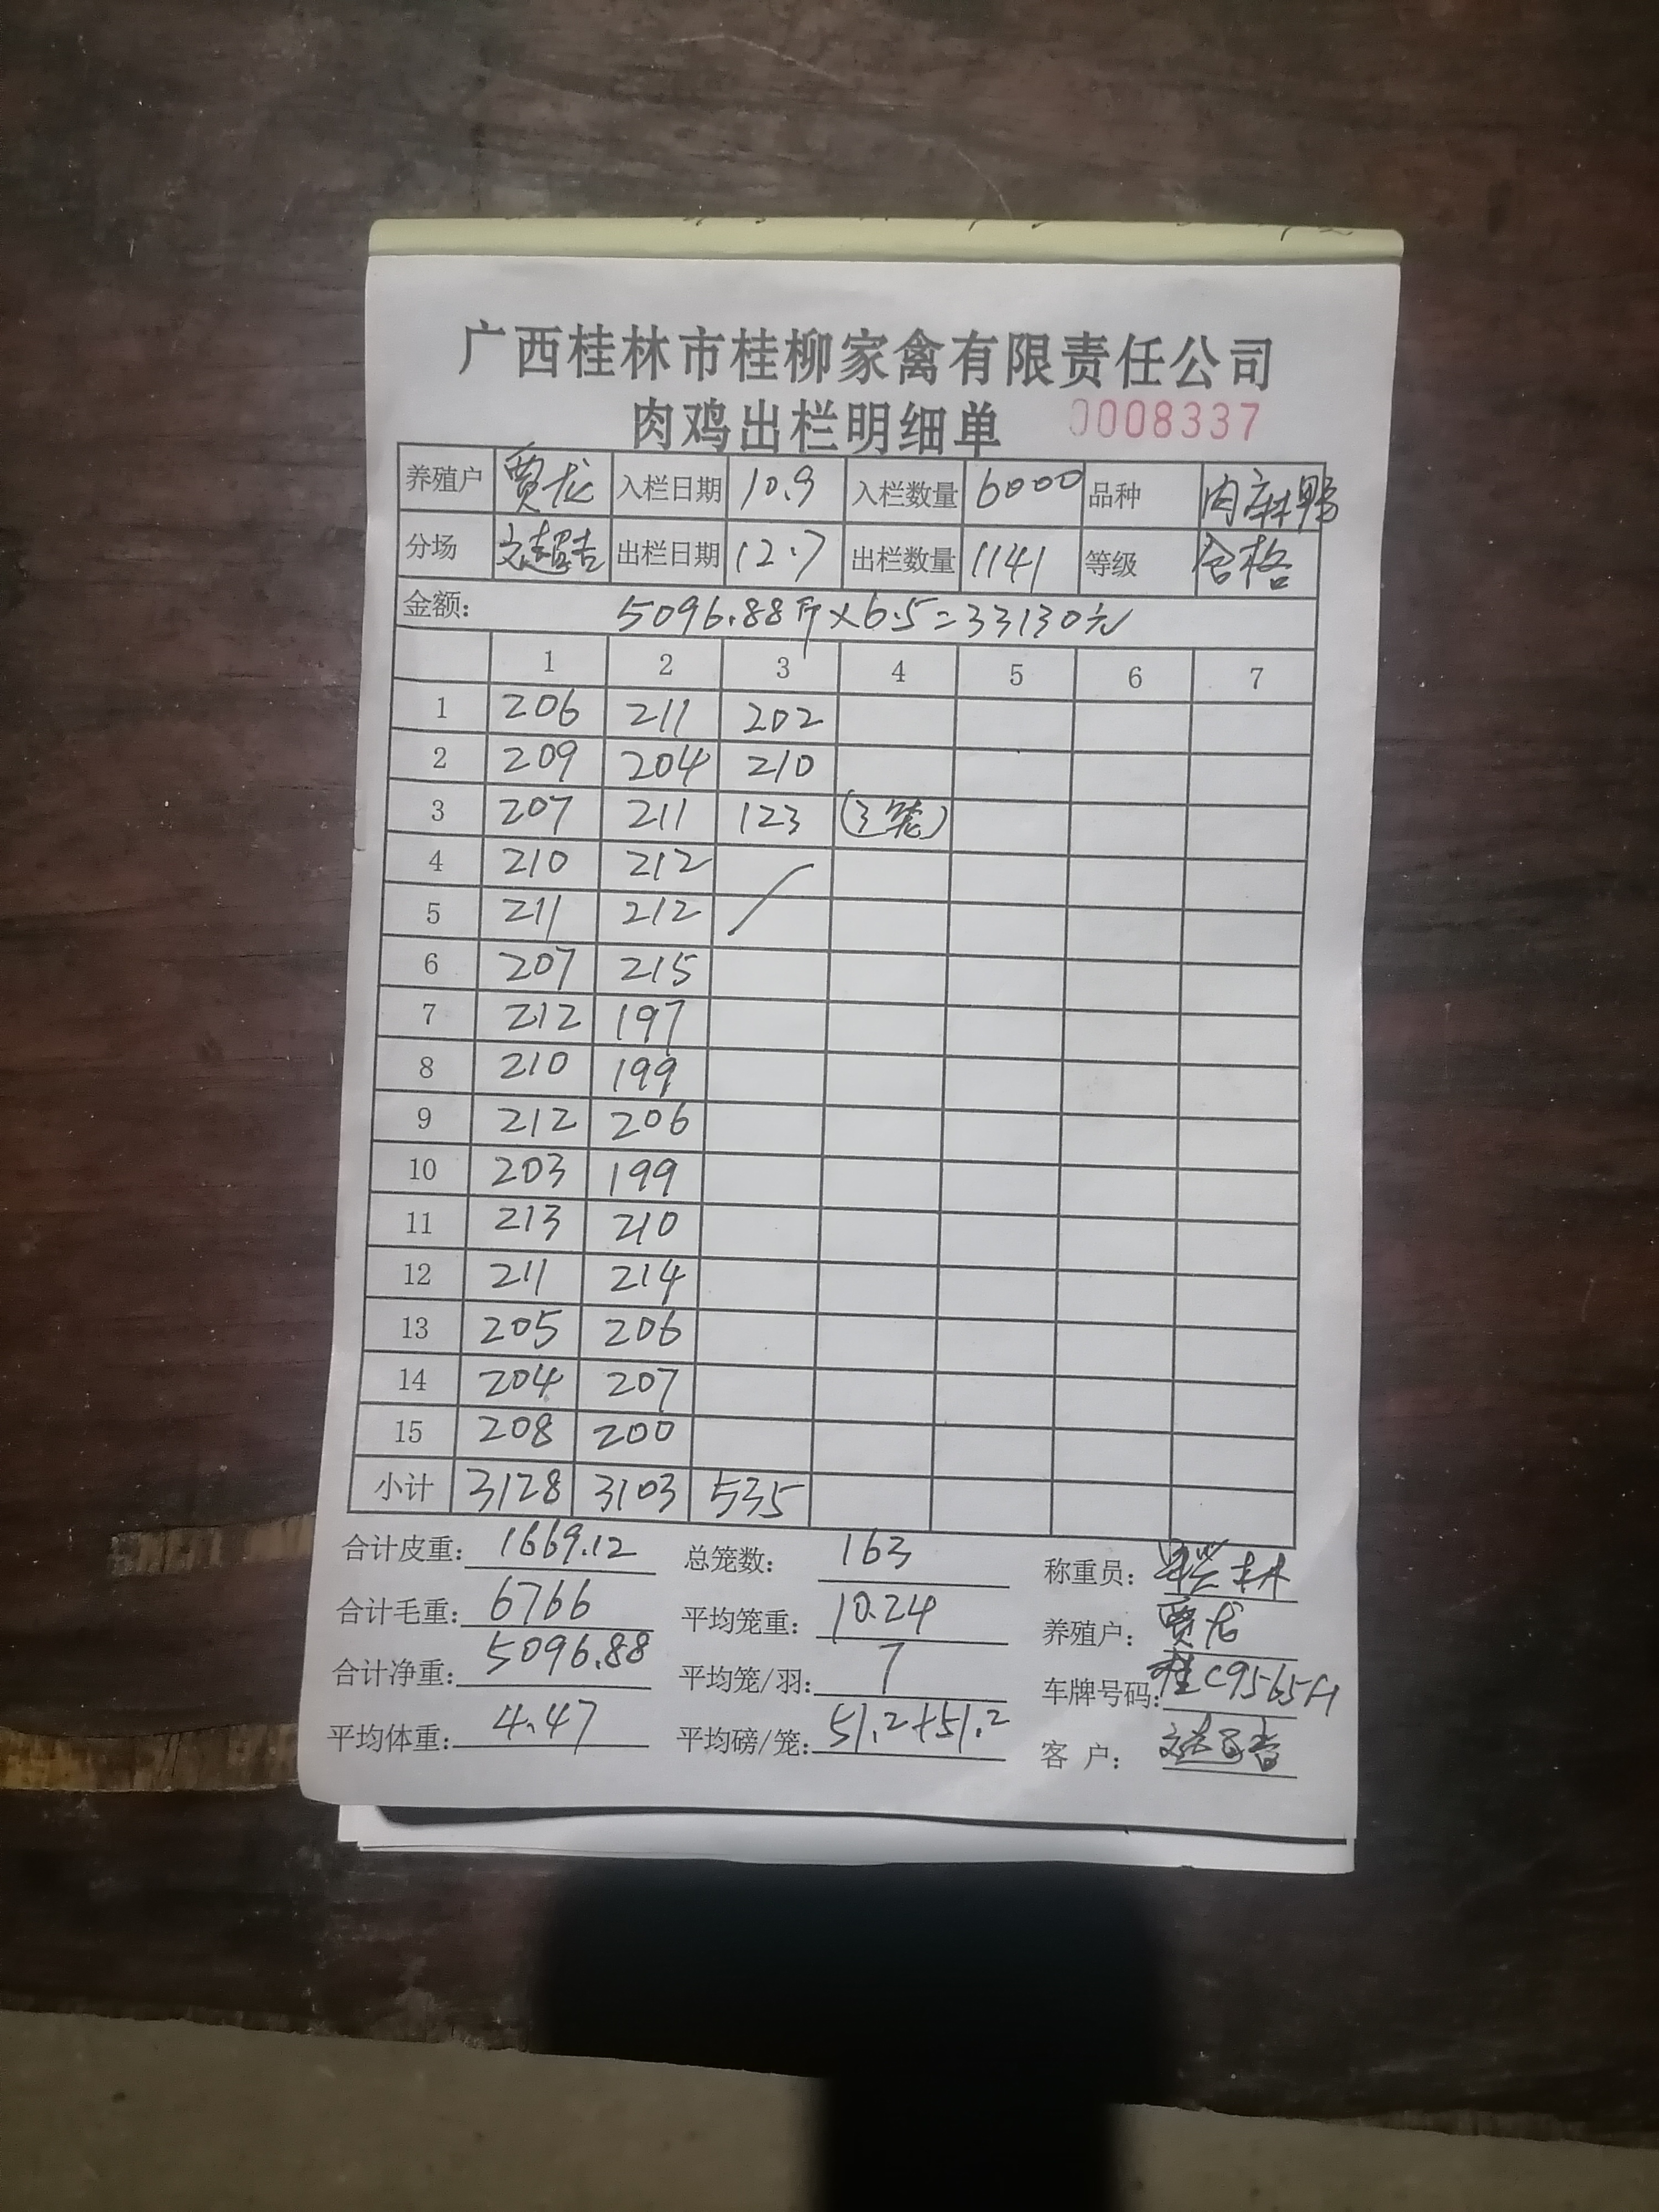 广西桂林市桂柳家禽有限责任公司
肉鸡出栏明细单 0008337
养殖户 贾龙 入栏日期 10.9 入栏数量 6000 品种 肉麻鸭
分场 出栏日期 12.7 出栏数量 1141 等级 合格
金额: 5096.88斤×6.5=33130元
1 2 3 4 5 6 7
1 206 211 202
2 209 204 210
3 207 211 123 (3笼)
4 210 212
5 211 212
6 207 215
7 212 197
8 210 199
9 212 206
10 203 199
11 213 210
12 211 214
13 205 206
14 204 207
15 208 200
小计 3128 3103 535
合计皮重: 1669.12 总笼数: 163 称重员:
合计毛重: 6766 平均笼重: 10.24 养殖户: 贾龙
合计净重: 5096.88 平均笼/羽: 7 车牌号码: 桂C9565H
平均体重: 4.47 平均磅/笼: 51.2+51.2 客 户: